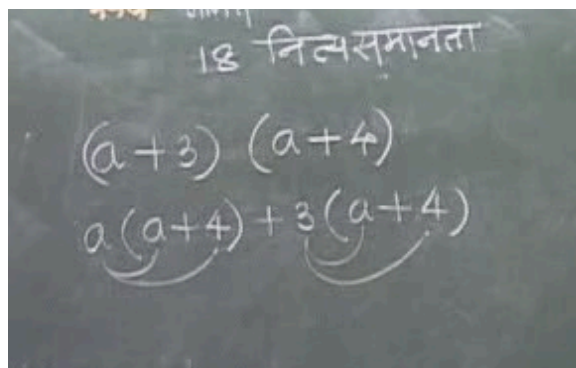 18 नित्यसमानता
(a+3) (a+4)
a(a+4)+3(a+4)